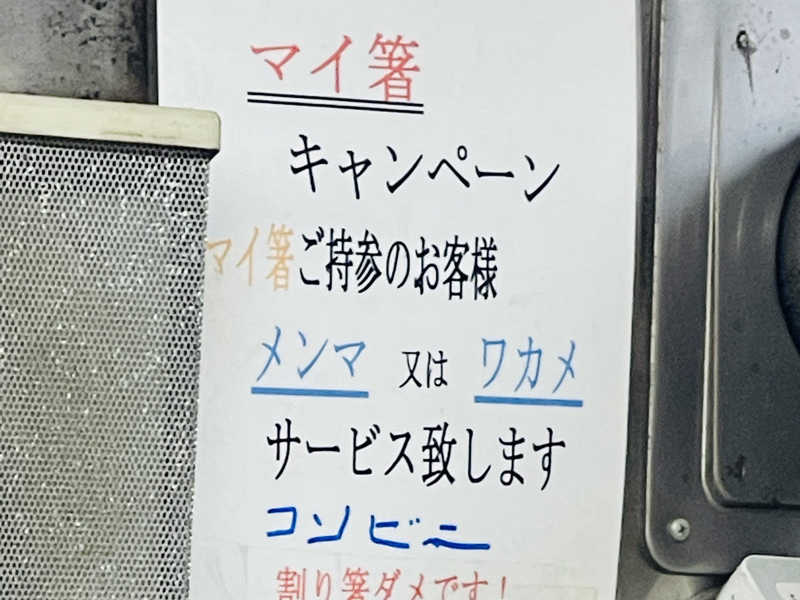 マイ箸
キャンペーン
マイ箸ご持参のお客様
メンマ 又は ワカメ
サービス致します
コンビニ
割り箸ダメです!